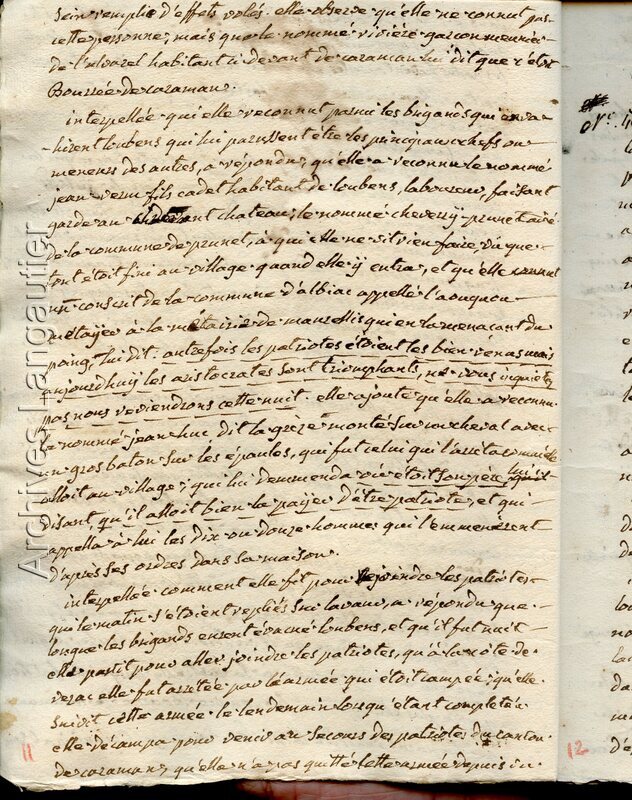 sein remplie d'effets volés. elle observe qu'elle ne connut pas
cette personne, mais que le nommé rivière garcon meunié
de habitant ci devant de caraman lui dit que c'étoit
Bourrée de caraman.
interpellée qu'elle reconnut parmi les brigands qui enva
hirent loubens qui lui parussent être les principaux chefs ou
meneurs des autres, a répondu, qu'elle a reconnu le nommé
jean fils cadet habitant de loubens, laboureur, faisant
garde au chateau, le nommé cheverry
de la commune de prunet, a qui elle ne vit rien faire, vu que
tout étoit fini au village quand elle y entra, et qu'elle connut
un conscrit de la commune d'albiac appellé
métayer à la métairie de qui en la menaçant du
poing, lui dit. autrefois les patriotes étoient les bien venus mais
aujourdhuy les aristocrates sont triomphants, ne vous inquietez
pas nous reviendrons cette nuit. elle ajoute qu'elle a reconnu
le nommé jean huc dit la grèze monté sur un cheval avec
un gros baton sur les epaules, qui fut celui qui l'arrêta comme elle
alloit au village; qui lui demmenda où étoit son père, lui
disant, qu'il alloit bien le payer d'être patriote, et qui
appella à lui les dix ou douze hommes qui l'emmenerent
d'après ses ordres dans sa maison.
interpellée comment elle fit pour rejoindre les patriotes
qui le matin s'étoient repliés sur lavaur, a répondu que
lorsque les brigands eurent évacué loubens, et qu'il fut nuit
elle partit pour aller joindre les patriotes, qu'à la côte de
verac elle fut arrêtée par l'armée qui étoit campée; qu'elle
suivit cette armée le lendemain lorsqu'étant complete
elle décampa pour venir au secours des patriotes du canton
de caraman, qu'elle n'a pas quitté cette armée depuis
11
12
Archives Langautier